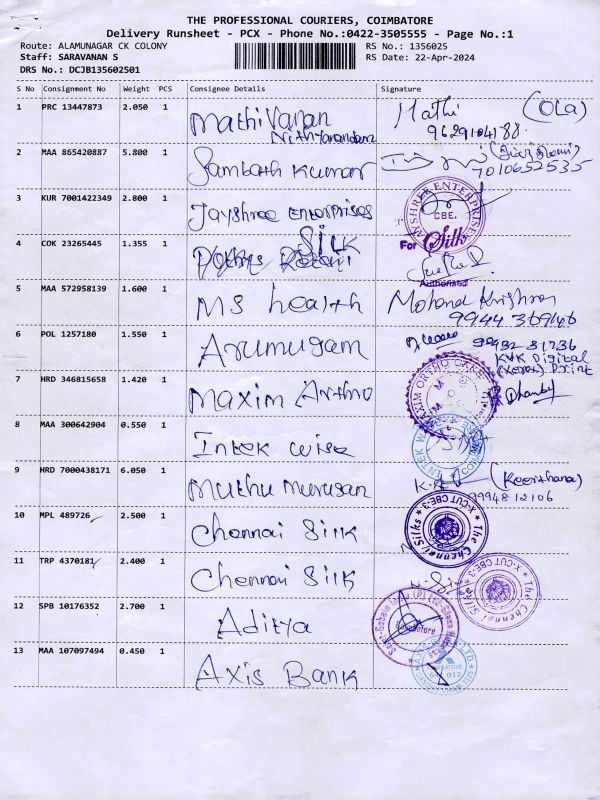 THE PROFESSIONAL COURIERS, COIMBATORE
Delivery Runsheet - PCX - Phone No.:0422-3505555 - Page No.:1
Route: ALAMUNAGAR CK COLONY
RS No.: 1356025
Staff: SARAVANAN S
RS Date: 22-Apr-2024
DRS No.: DCJB135602501
S No Consignment No Weight PCS Consignee Details Signature
1 PRC 13447873 2.050 1 Mathivanan Mathi (Ola)
Nithyanandam 9629104188
2 MAA 865420887 5.800 1 Sambath Kumar
7010652535
3 KUR 7001422349 2.800 1 Jayshree Enterprises
JAYSHREE ENTERPRISES CBE.
4 COK 23265445 1.355 1 SILK
For Silks
Authorised
5 MAA 572958139 1.600 1 MS health Mohana Krishnan
9944 36946
6 POL 1257180 1.550 1 Arumugam 99432 31736
KVK Digital
(Xerox) Print
7 HRD 346815658 1.420 1 Maxim Ortho
MAXIM ORTHO CARE
8 MAA 300642904 0.550 1 Intek Wise
INTEK
9 HRD 7000438171 6.050 1 Muthu Murugan (Keerthana)
9994812106
10 MPL 489726 2.500 1 Chennai Silk
The Chennai Silks X-CUT CBE-3
11 TRP 4370181 2.400 1 Chennai Silk
The Chennai Silks X-CUT CBE-3
12 SPB 10176352 2.700 1 Aditya
13 MAA 107097494 0.450 1 Axis Bank